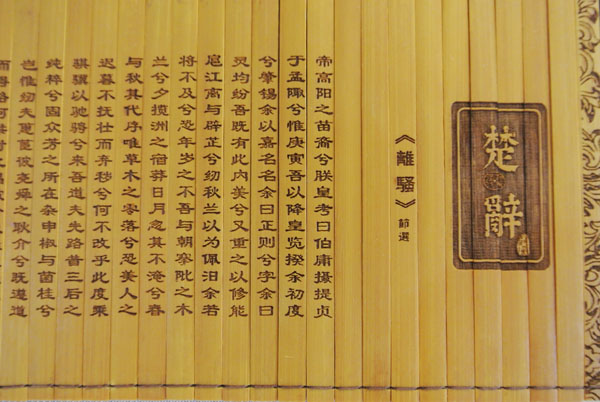 楚辭
《離騷》
節選
帝高阳之苗裔兮朕皇考曰伯庸摄提贞
于孟陬兮惟庚寅吾以降皇览揆余初度
兮肇锡余以嘉名名余曰正则兮字余曰
灵均纷吾既有此内美兮又重之以修能
扈江离与辟芷兮纫秋兰以为佩汨余若
将不及兮恐年岁之不吾与朝搴阰之木
兰兮夕揽洲之宿莽日月忽其不淹兮春
与秋其代序唯草木之零落兮恐美人之
迟暮不抚壮而弃秽兮何不改乎此度乘
骐骥以驰骋兮来吾道夫先路昔三后之
纯粹兮固众芳之所在杂申椒与菌桂兮
岂惟纫夫蕙茝彼尧舜之耿介兮既遵道
而得路何